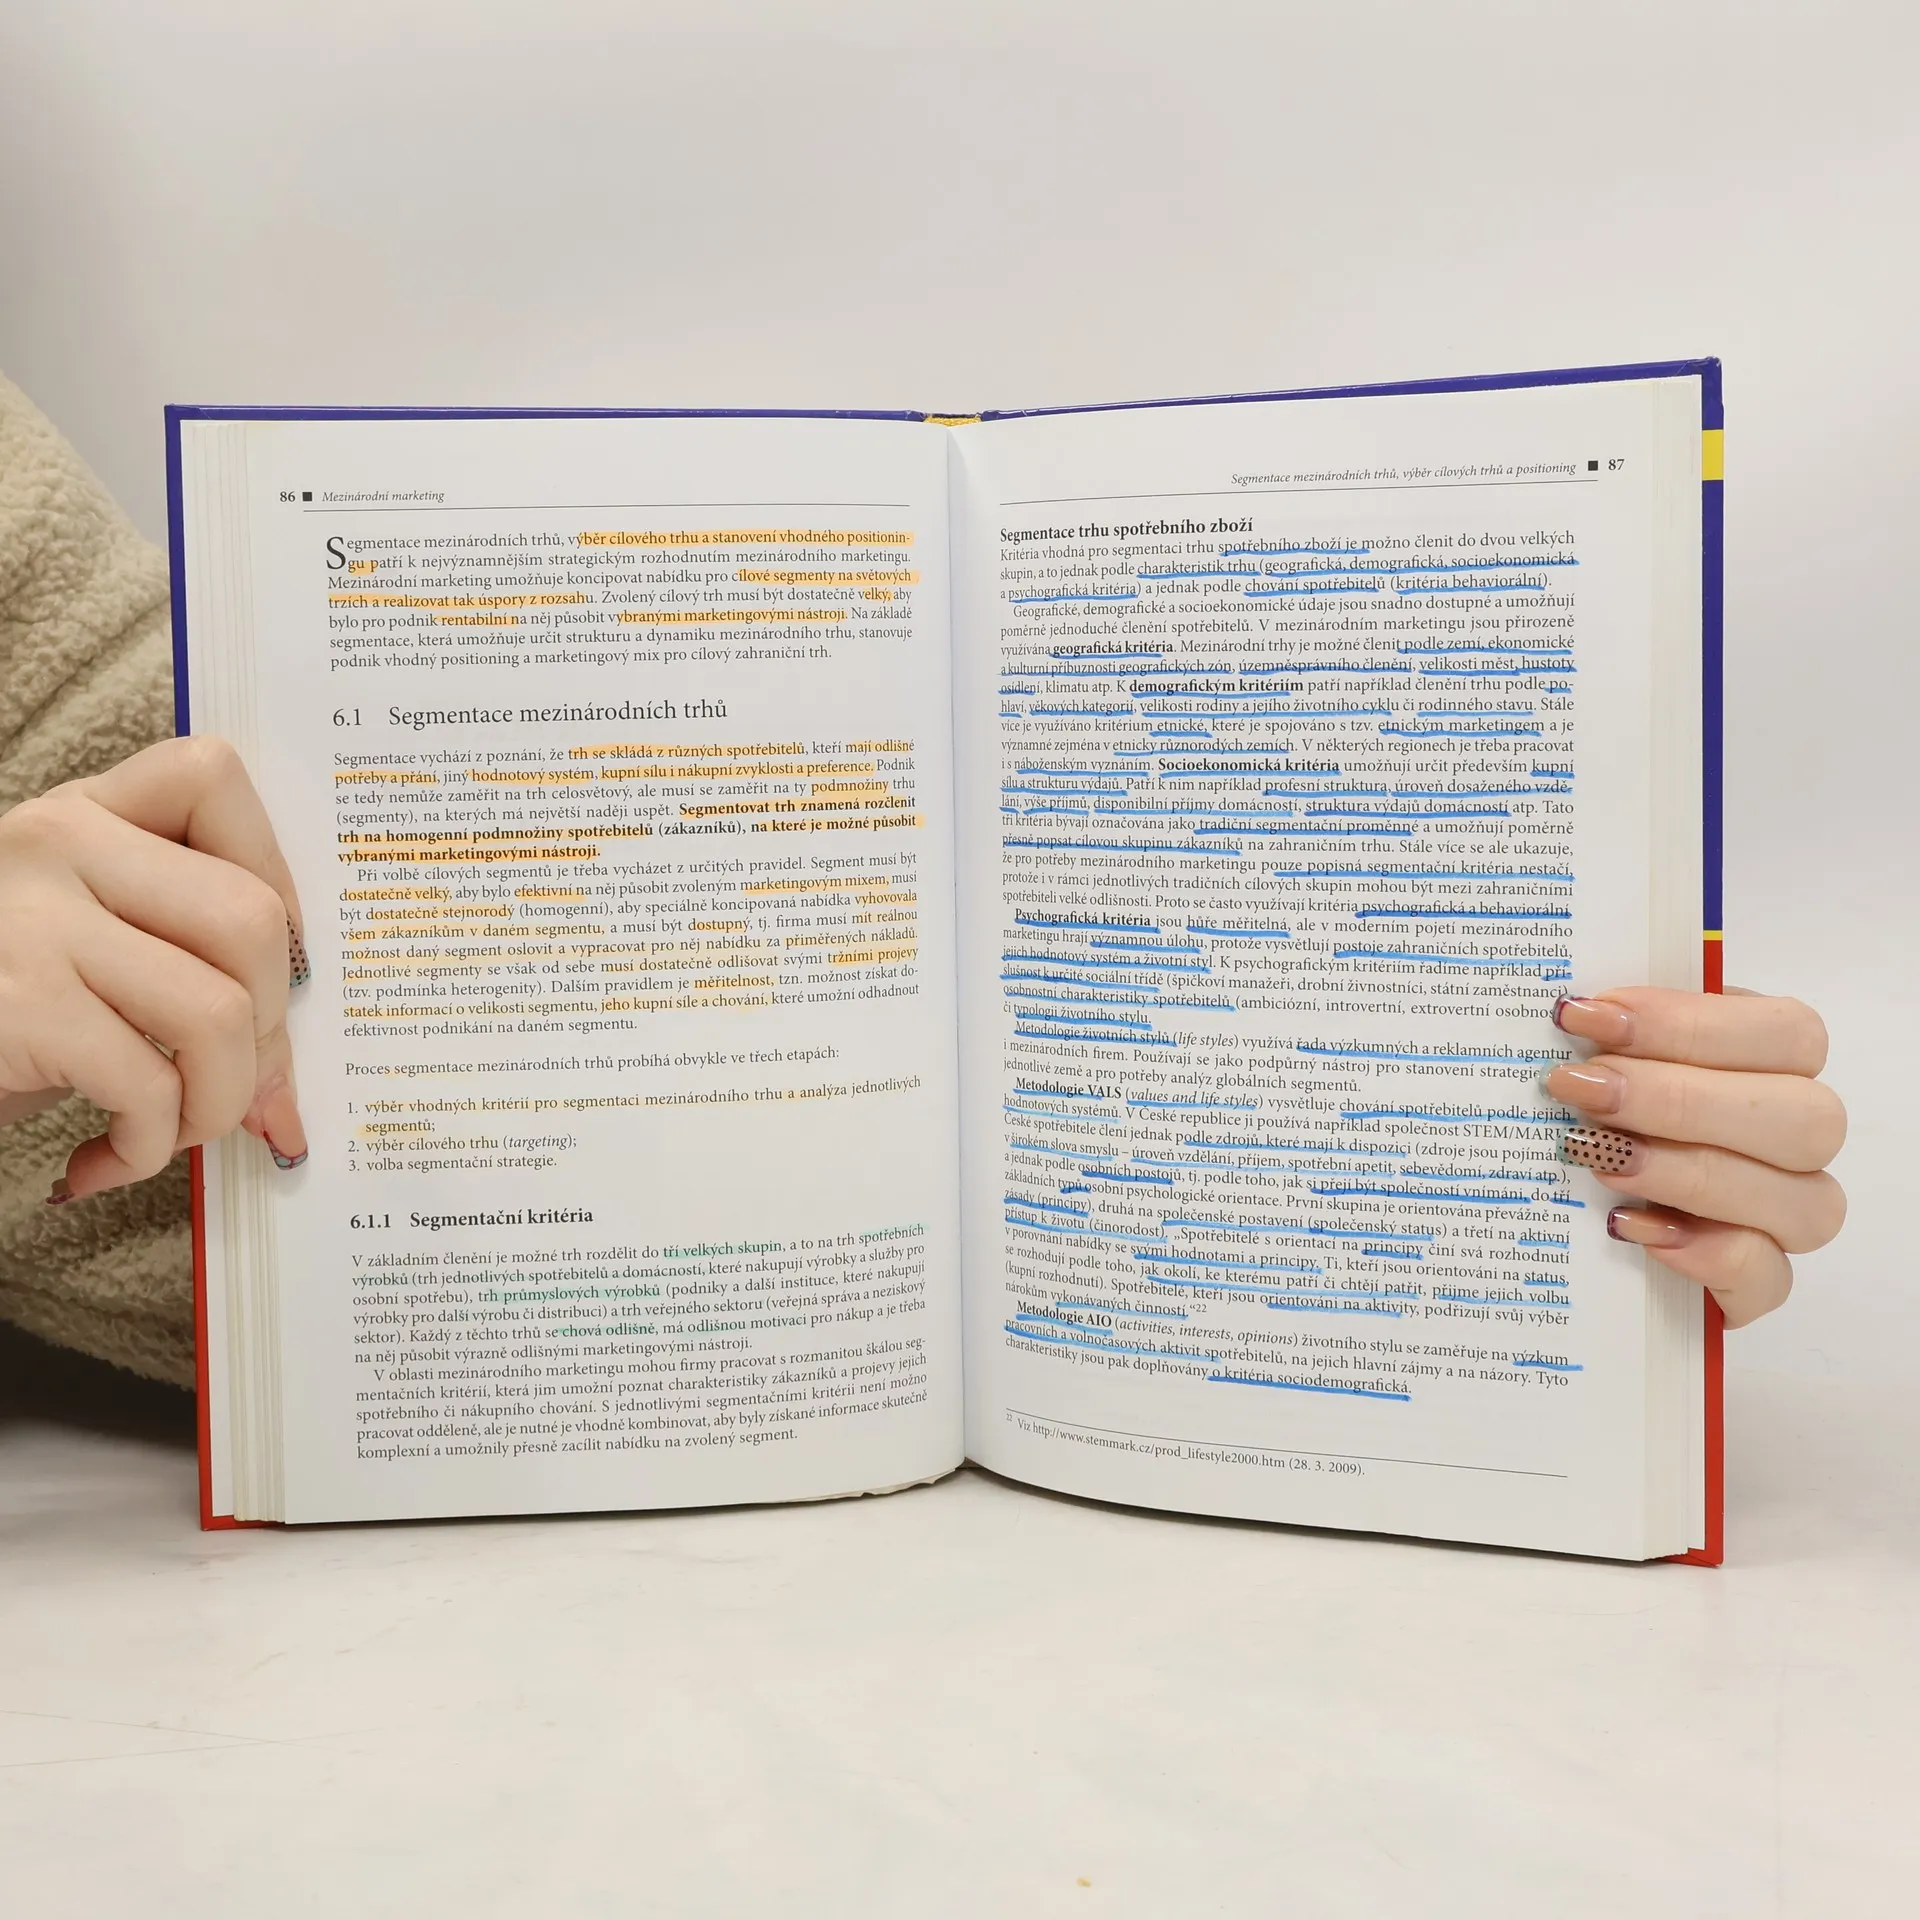 86 ■ Mezinárodní marketing
Segmentace mezinárodních trhů, výběr cílového trhu a stanovení vhodného positionin-
gu patří k nejvýznamnějším strategickým rozhodnutím mezinárodního marketingu.
Mezinárodní marketing umožňuje koncipovat nabídku pro cílové segmenty na světových
trzích a realizovat tak úspory z rozsahu. Zvolený cílový trh musí být dostatečně velký, aby
bylo pro podnik rentabilní na něj působit vybranými marketingovými nástroji. Na základě
segmentace, která umožňuje určit strukturu a dynamiku mezinárodního trhu, stanovuje
podnik vhodný positioning a marketingový mix pro cílový zahraniční trh.
6.1 Segmentace mezinárodních trhů
Segmentace vychází z poznání, že trh se skládá z různých spotřebitelů, kteří mají odlišné
potřeby a přání, jiný hodnotový systém, kupní sílu i nákupní zvyklosti a preference. Podnik
se tedy nemůže zaměřit na trh celosvětový, ale musí se zaměřit na ty podmnožiny trhu
(segmenty), na kterých má největší naději uspět. Segmentovat trh znamená rozčlenit
trh na homogenní podmnožiny spotřebitelů (zákazníků), na které je možné působit
vybranými marketingovými nástroji.
Při volbě cílových segmentů je třeba vycházet z určitých pravidel. Segment musí být
dostatečně velký, aby bylo efektivní na něj působit zvoleným marketingovým mixem, musí
být dostatečně stejnorodý (homogenní), aby speciálně koncipovaná nabídka vyhovovala
všem zákazníkům v daném segmentu, a musí být dostupný, tj. firma musí mít reálnou
možnost daný segment oslovit a vypracovat pro něj nabídku za přiměřených nákladů.
Jednotlivé segmenty se však od sebe musí dostatečně odlišovat svými tržními projevy
(tzv. podmínka heterogenity). Dalším pravidlem je měřitelnost, tzn. možnost získat do-
statek informací o velikosti segmentu, jeho kupní síle a chování, které umožní odhadnout
efektivnost podnikání na daném segmentu.
Proces segmentace mezinárodních trhů probíhá obvykle ve třech etapách:
1. výběr vhodných kritérií pro segmentaci mezinárodního trhu a analýza jednotlivých
segmentů;
2. výběr cílového trhu (targeting);
3. volba segmentační strategie.
6.1.1 Segmentační kritéria
V základním členění je možné trh rozdělit do tří velkých skupin, a to na trh spotřebních
výrobků (trh jednotlivých spotřebitelů a domácností, které nakupují výrobky a služby pro
osobní spotřebu), trh průmyslových výrobků (podniky a další instituce, které nakupují
výrobky pro další výrobu či distribuci) a trh veřejného sektoru (veřejná správa a neziskový
sektor). Každý z těchto trhů se chová odlišně, má odlišnou motivaci pro nákup a je třeba
na něj působit výrazně odlišnými marketingovými nástroji.
V oblasti mezinárodního marketingu mohou firmy pracovat s rozmanitou škálou seg-
mentačních kritérií, která jim umožní poznat charakteristiky zákazníků a projevy jejich
spotřebního či nákupního chování. S jednotlivými segmentačními kritérii není možno
pracovat odděleně, ale je nutné je vhodně kombinovat, aby byly získané informace skutečně
komplexní a umožnily přesně zacílit nabídku na zvolený segment.
Segmentace mezinárodních trhů, výběr cílových trhů a positioning ■ 87
Segmentace trhu spotřebního zboží
Kritéria vhodná pro segmentaci trhu spotřebního zboží je možno členit do dvou velkých
skupin, a to jednak podle charakteristik trhu (geografická, demografická, socioekonomická
a psychografická kritéria) a jednak podle chování spotřebitelů (kritéria behaviorální).
Geografické, demografické a socioekonomické údaje jsou snadno dostupné a umožňují
poměrně jednoduché členění spotřebitelů. V mezinárodním marketingu jsou přirozeně
využívána geografická kritéria. Mezinárodní trhy je možné členit podle zemí, ekonomické
a kulturní příbuznosti geografických zón, územněsprávního členění, velikosti měst, hustoty
osídlení, klimatu atp. K demografickým kritériím patří například členění trhu podle po-
hlaví, věkových kategorií, velikosti rodiny a jejího životního cyklu či rodinného stavu. Stále
více je využíváno kritérium etnické, které je spojováno s tzv. etnickým marketingem a je
významné zejména v etnicky různorodých zemích. V některých regionech je třeba pracovat
i s náboženským vyznáním. Socioekonomická kritéria umožňují určit především kupní
sílu a strukturu výdajů. Patří k nim například profesní struktura, úroveň dosaženého vzdě-
lání, výše příjmů, disponibilní příjmy domácností, struktura výdajů domácností atp. Tato
tři kritéria bývají označována jako tradiční segmentační proměnné a umožňují poměrně
přesně popsat cílovou skupinu zákazníků na zahraničním trhu. Stále více se ale ukazuje,
že pro potřeby mezinárodního marketingu pouze popisná segmentační kritéria nestačí,
protože i v rámci jednotlivých tradičních cílových skupin mohou být mezi zahraničními
spotřebiteli velké odlišnosti. Proto se často využívají kritéria psychografická a behaviorální.
Psychografická kritéria jsou hůře měřitelná, ale v moderním pojetí mezinárodního
marketingu hrají významnou úlohu, protože vysvětlují postoje zahraničních spotřebitelů,
jejich hodnotový systém a životní styl. K psychografickým kritériím řadíme například pří-
slušnost k určité sociální třídě (špičkoví manažeři, drobní živnostníci, státní zaměstnanci),
osobnostní charakteristiky spotřebitelů (ambiciózní, introvertní, extrovertní osobnos
či typologii životního stylu.
Metodologie životních stylů (life styles) využívá řada výzkumných a reklamních agentur
i mezinárodních firem. Používají se jako podpůrný nástroj pro stanovení strategie
jednotlivé země a pro potřeby analýz globálních segmentů.
Metodologie VALS (values and life styles) vysvětluje chování spotřebitelů podle jejich
hodnotových systémů. V České republice ji používá například společnost STEM/MARK
České spotřebitele člení jednak podle zdrojů, které mají k dispozici (zdroje jsou pojímán
v širokém slova smyslu – úroveň vzdělání, příjem, spotřební apetit, sebevědomí, zdraví atp.),
a jednak podle osobních postojů, tj. podle toho, jak si přejí být společností vnímáni, do tří
základních typů osobní psychologické orientace. První skupina je orientována převážně na
zásady (principy), druhá na společenské postavení (společenský status) a třetí na aktivní
přístup k životu (činorodost). „Spotřebitelé s orientací na principy činí svá rozhodnutí
v porovnání nabídky se svými hodnotami a principy. Ti, kteří jsou orientováni na status,
se rozhodují podle toho, jak okolí, ke kterému patří či chtějí patřit, přijme jejich volbu
(kupní rozhodnutí). Spotřebitelé, kteří jsou orientováni na aktivity, podřizují svůj výběr
nárokům vykonávaných činností.“22
Metodologie AIO (activities, interests, opinions) životního stylu se zaměřuje na výzkum
pracovních a volnočasových aktivit spotřebitelů, na jejich hlavní zájmy a na názory. Tyto
charakteristiky jsou pak doplňovány o kritéria sociodemografická.
22 Viz http://www.stemmark.cz/prod_lifestyle2000.htm (28. 3. 2009).